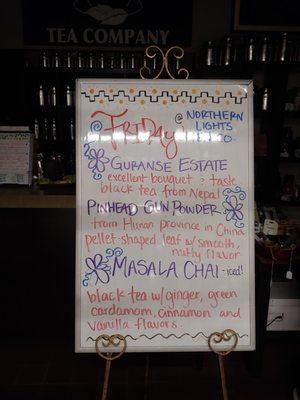 TEA COMPANY
FRIDAY
@ NORTHERN
LIGHTS
GURANSE ESTATE
excellent bouquet & taste
black tea from Nepal
PINHEAD GUN POWDER
from Hunan province in China
pellet shaped leaf w/ smooth,
nutty flavor
MASALA CHAI - iced!
black tea w/ginger, green
cardamom, cinnamon and
vanilla flavors.